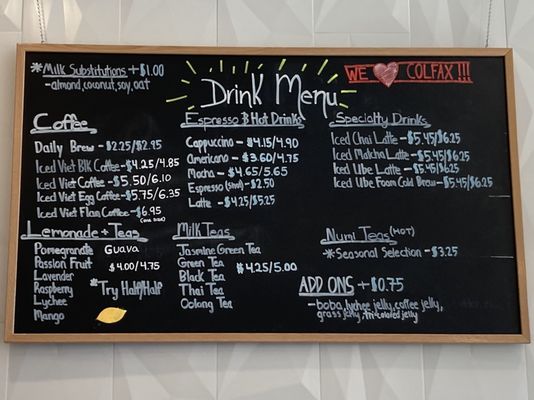 *Milk Substitutions +$1.00
-almond, coconut, soy, oat
Drink Menu
WE COLFAX!!!
Coffee
Daily Brew - $2.25/$2.95
Iced Viet Blk Coffee - $4.25/4.85
Iced Viet Coffee - $5.50/6.10
Iced Viet Egg Coffee - $5.75/6.35
Iced Viet Flan Coffee - $6.95
(one size)
Espresso & Hot Drinks
Cappuccino - $4.15/4.90
Americano - $3.60/4.75
Mocha - $4.65/5.65
Espresso (shot) - $2.50
Latte - $4.25/$5.25
Specialty Drinks
Iced Chai Latte - $5.45/$6.25
Iced Matcha Latte - $5.45/$6.25
Iced Ube Latte - $5.45/$6.25
Iced Ube Foam Cold Brew - $5.45/$6.25
Lemonade + Teas
Pomegranate Guava
Passion Fruit $4.00/4.75
Lavender
Raspberry *Try Half/Half
Lychee
Mango
Milk Teas
Jasmine Green Tea
Green Tea $4.25/5.00
Black Tea
Thai Tea
Oolong Tea
Numi Teas (HOT)
-*Seasonal Selection - $3.25
ADD ONS +$0.75
-boba, lychee jelly, coffee jelly,
grass jelly, tri-colored jelly